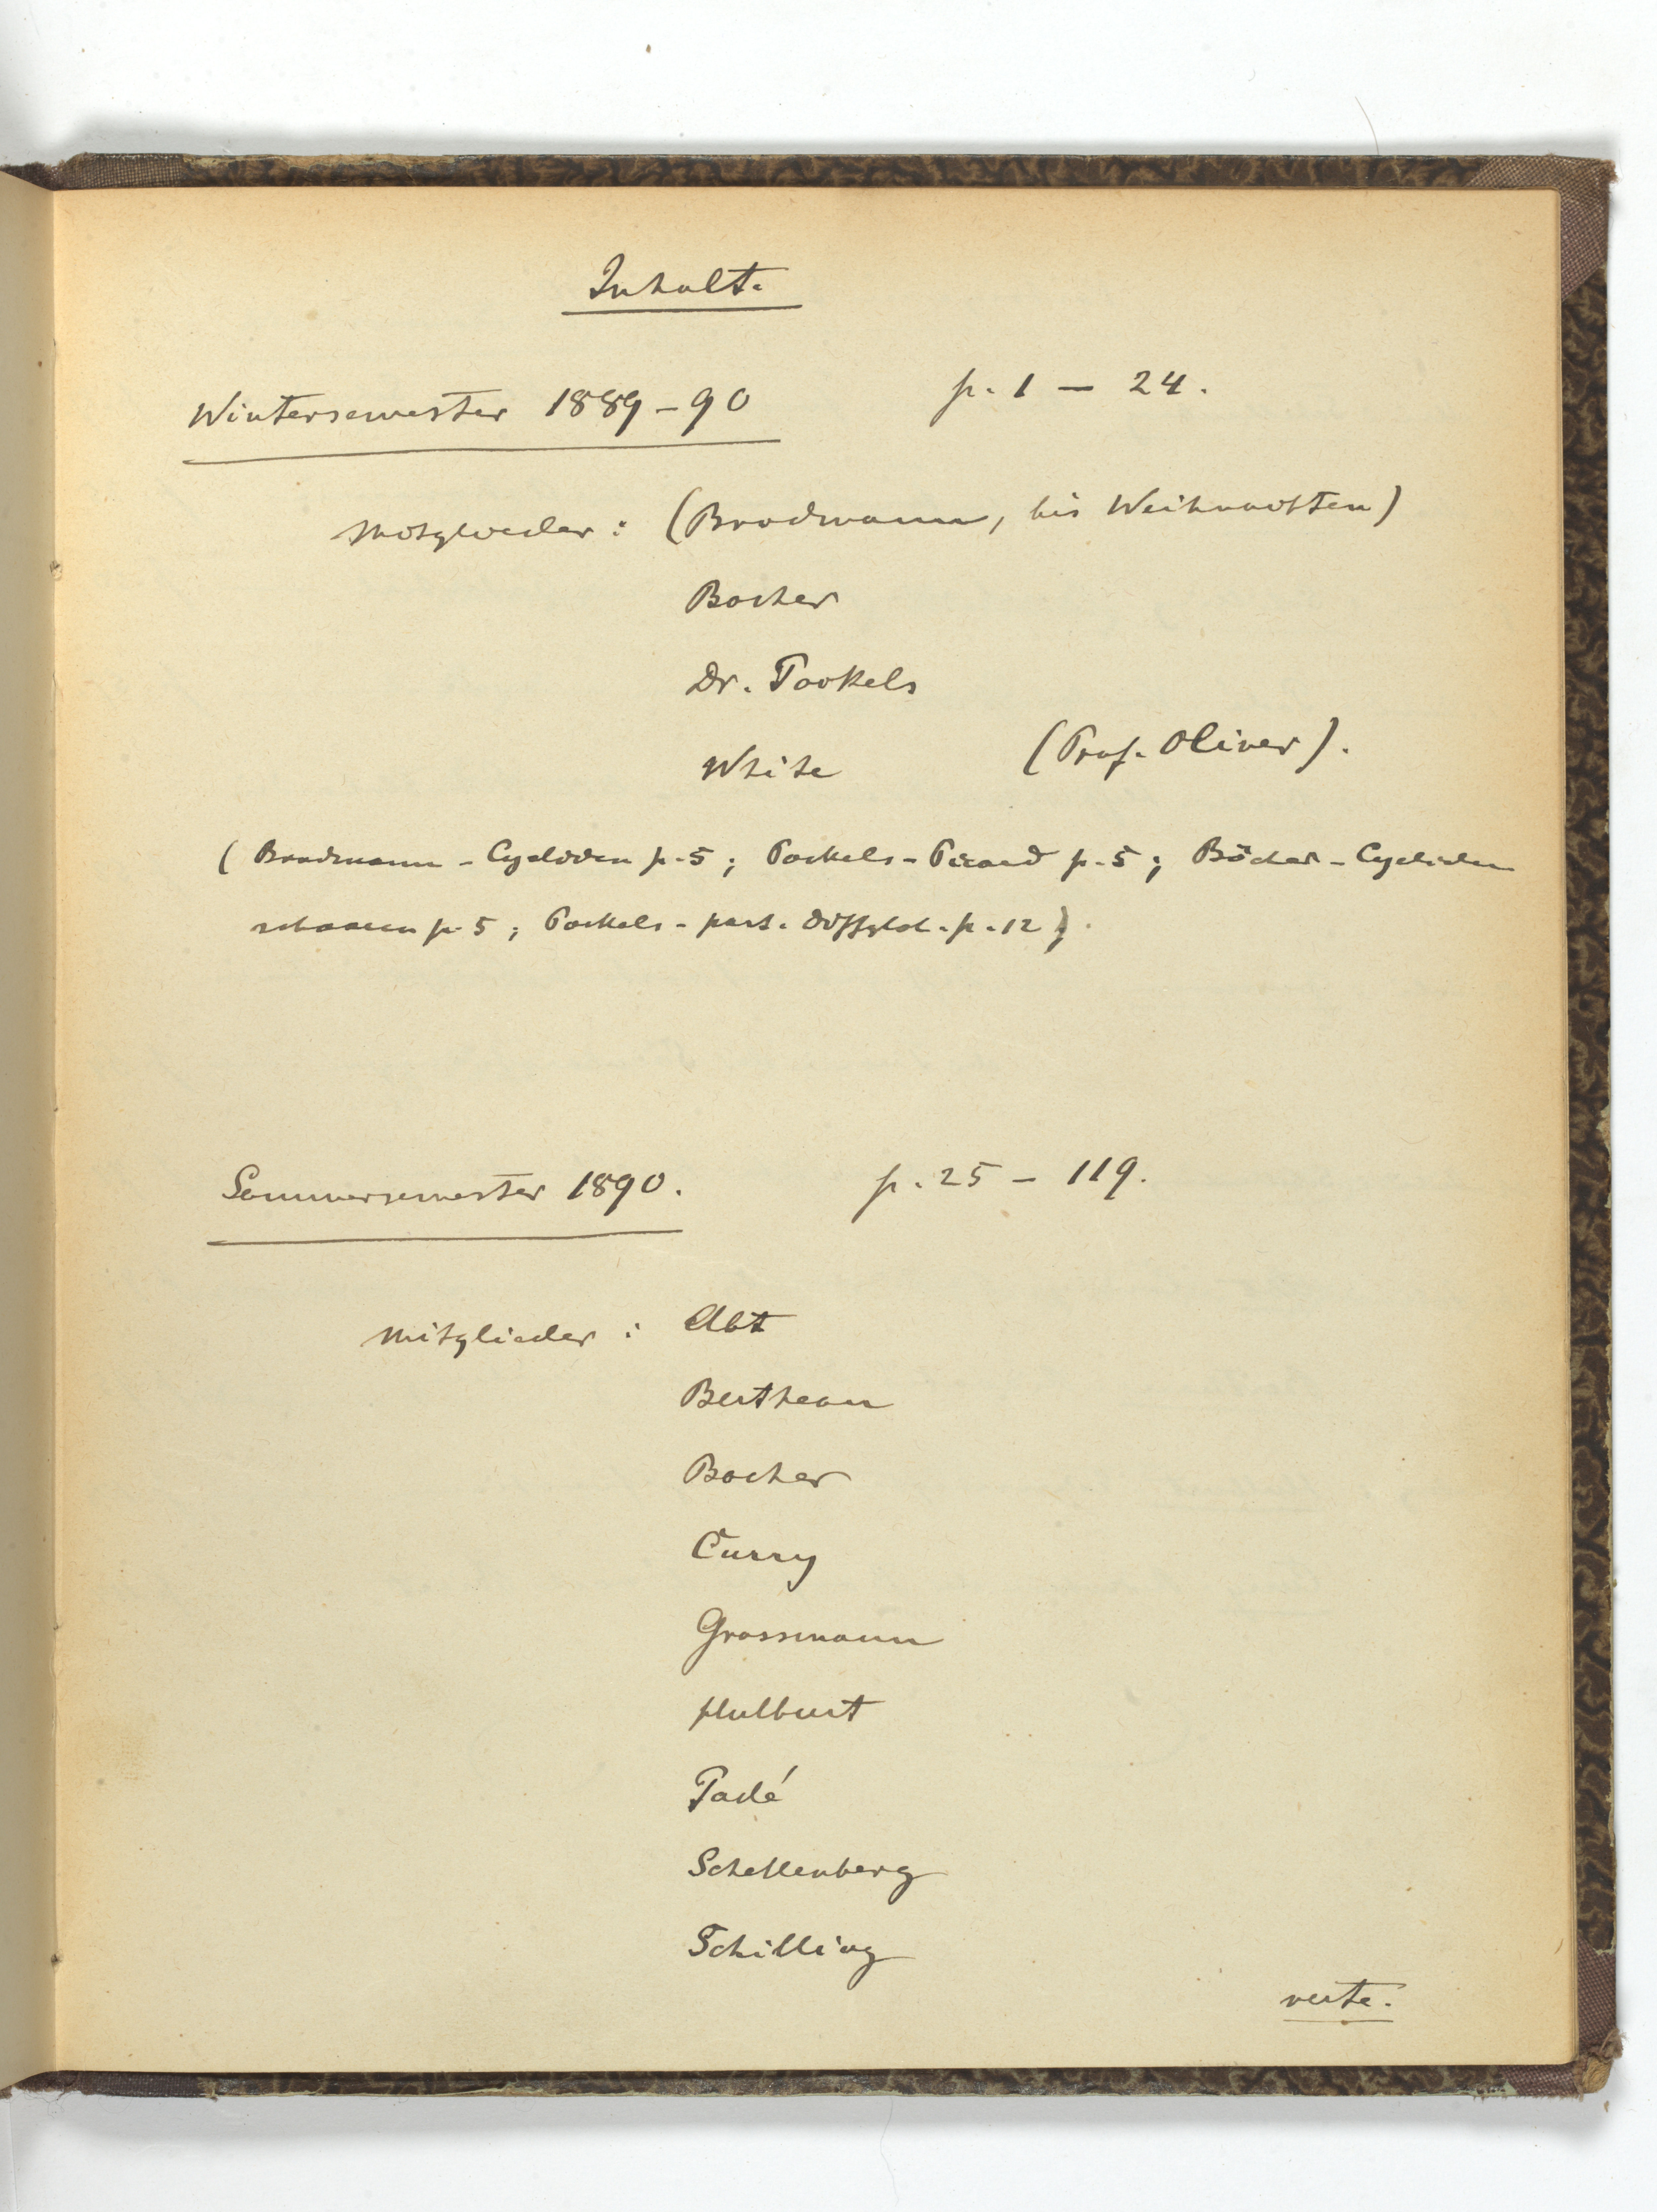 Inhalt.
Wintersemester 1889-90 p. 1 — 24.
Mitglieder: (Brodmann, bis Weihnachten)
Bocher
Dr. Pockels
White (Prof. Oliver).
(Brodmann - Cycliden p. 5; Pockels - Picard p. 5; Bôcher - Cycliden
scharen p. 5; Pockels - part. Diffglch. p. 12).
Sommersemester 1890. p. 25 — 119.
Mitglieder: Abt
Bertheau
Bocher
Curry
Grassmann
Hulburt
Padé
Schellenberg
Schilling
verte.